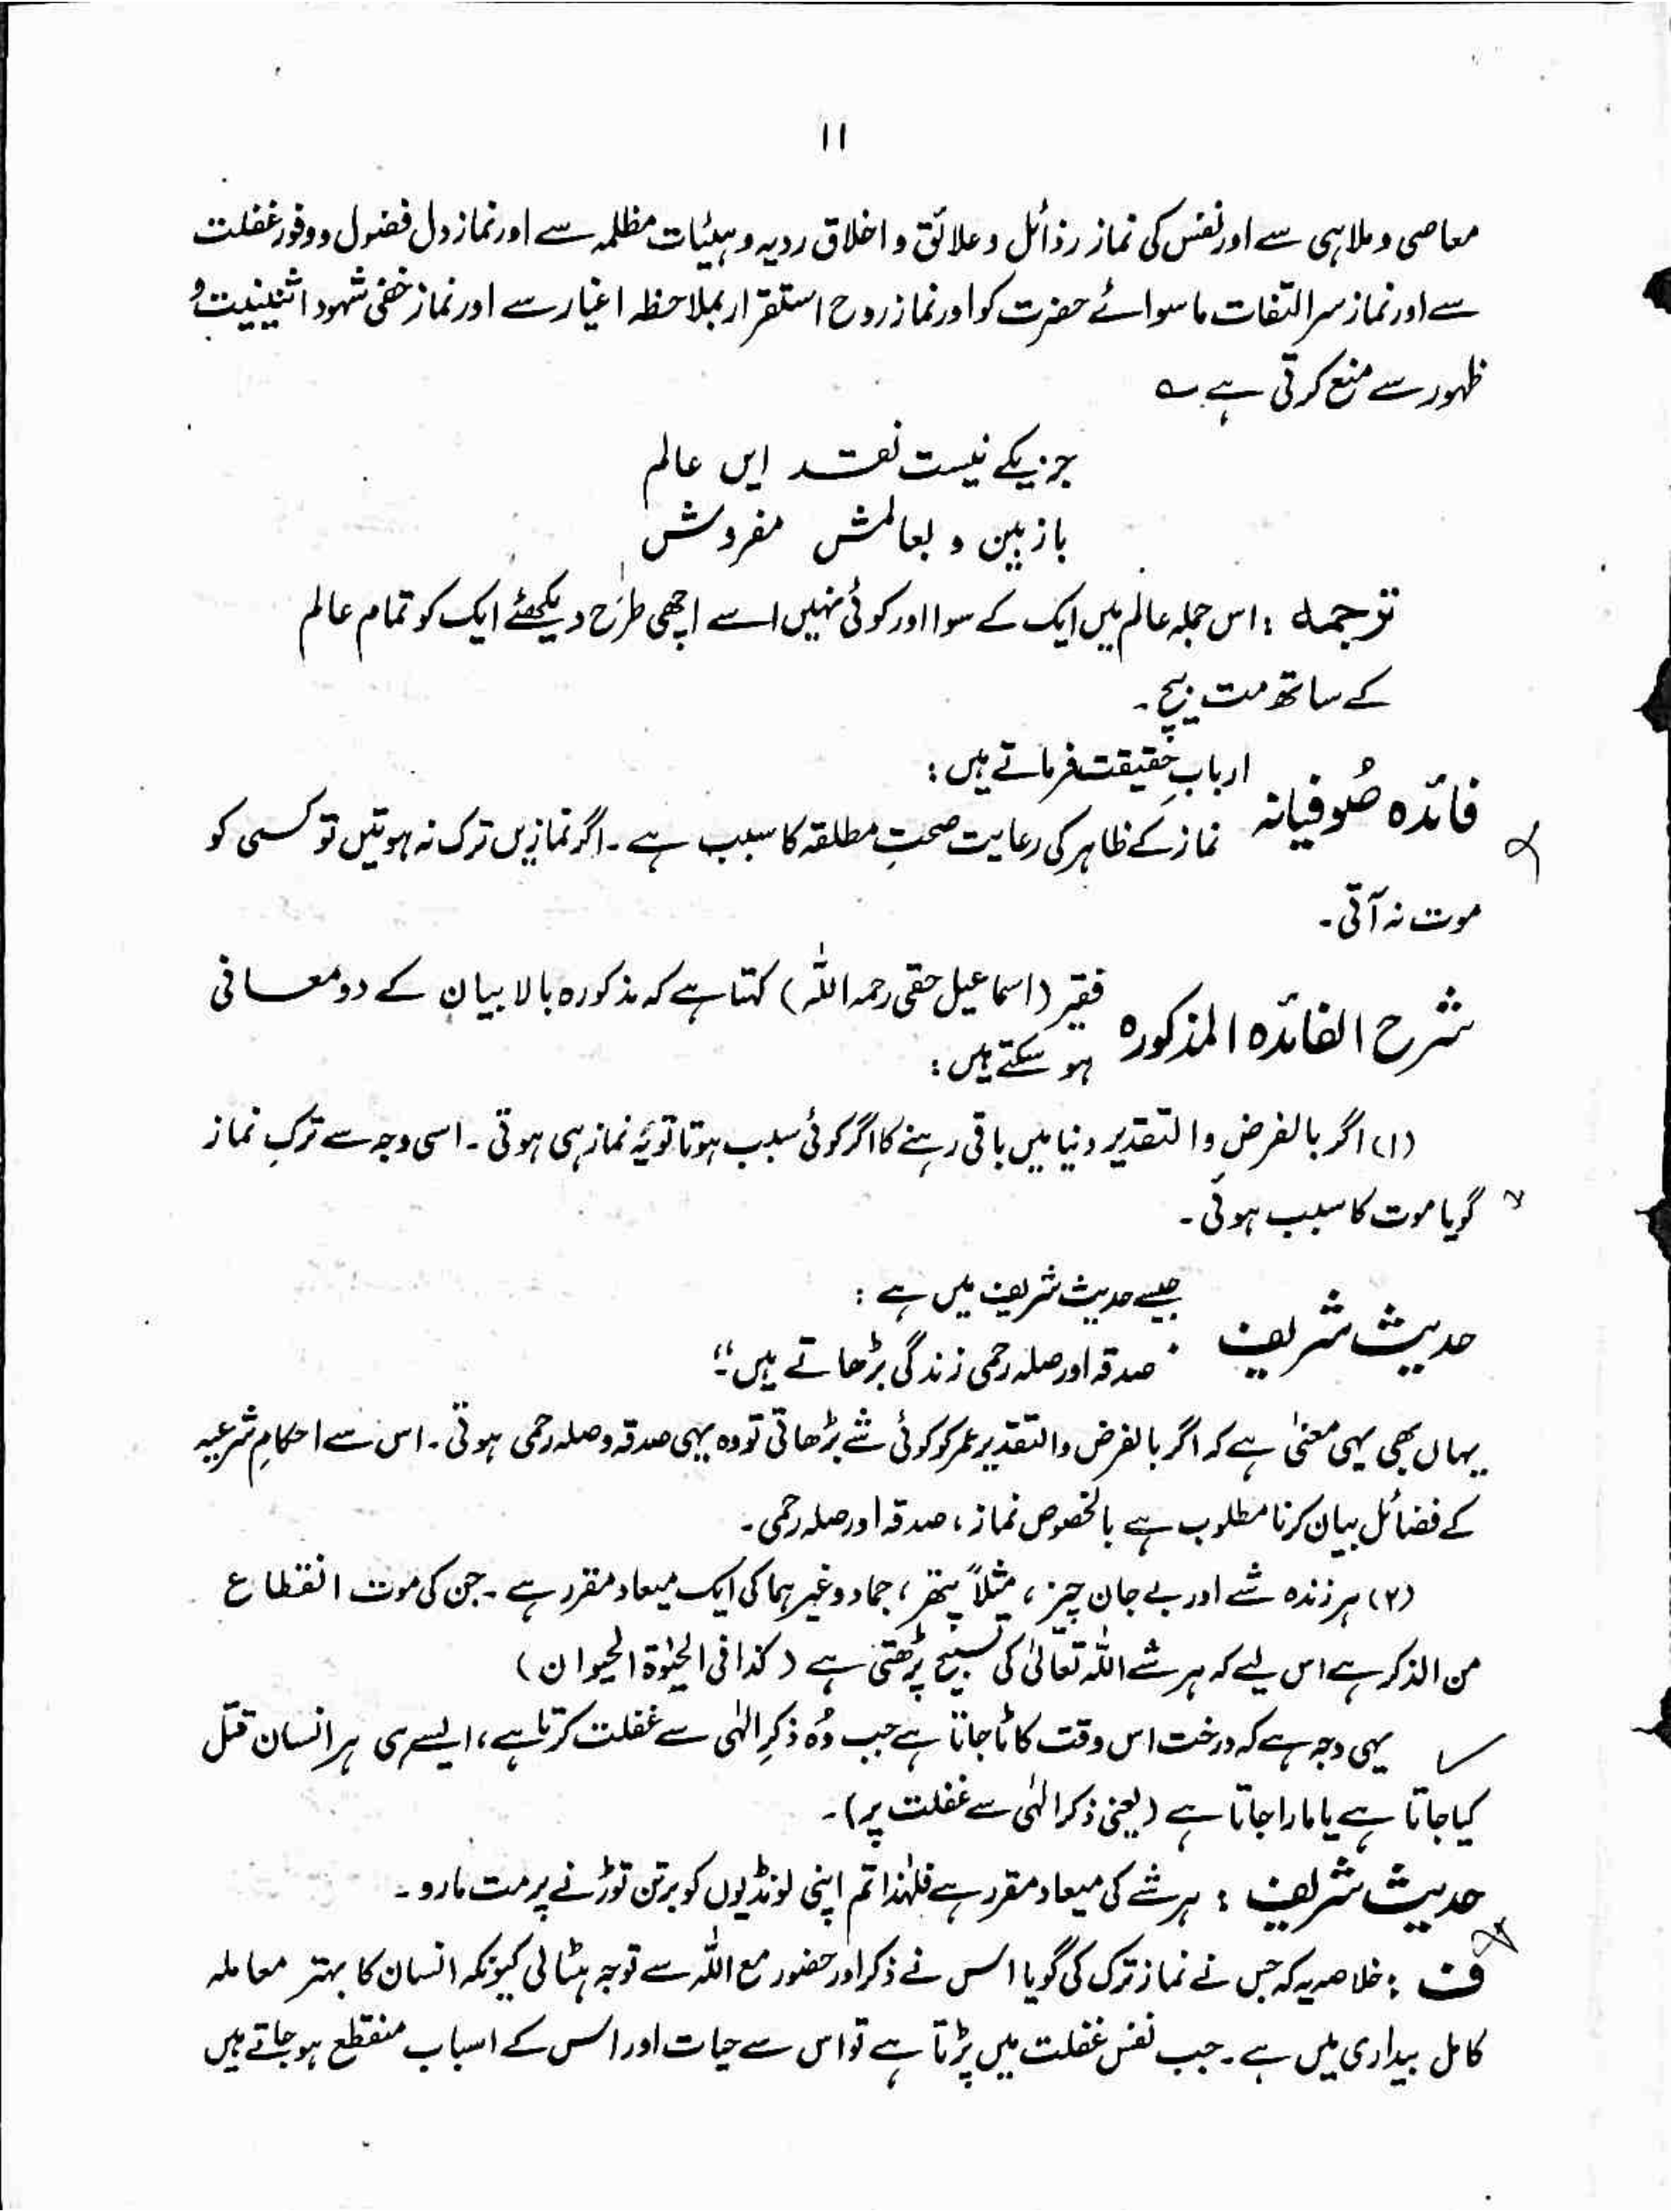 ۱۱
معاصی و ملاہی سے اور نفس کی نماز رذائل و علائق و اخلاق ردیہ و ہیئات مظلمہ سے اور نماز دل فضول و وفور غفلت
سے اور نماز سر التفات ماسوائے حضرت کو اور نماز روح استقرار بملاحظہ اغیار سے اور نماز خفی شہود اثنینیت و
ظہور سے منع کرتی ہے ؎
جز یکے نیست نقد ایں عالم
باز بین و بعالمش مفروش
ترجمہ : اس جملہ عالم میں ایک کے سوا اور کوئی نہیں اسے اچھی طرح دیکھئے ایک کو تمام عالم
کے ساتھ مت بیچ ۔
فائدہ صُوفیانہ
اربابِ حقیقت فرماتے ہیں :
نماز کے ظاہر کی رعایت صحتِ مطلقہ کا سبب ہے ۔ اگر نمازیں ترک نہ ہوتیں تو کسی کو
موت نہ آتی ۔
شرح الفائدہ المذکورہ
فقیر (اسماعیل حقی رحمہ اللہ) کہتا ہے کہ مذکورہ بالا بیان کے دو معانی
ہو سکتے ہیں :
(۱) اگر بالفرض والتقدیر دنیا میں باقی رہنے کا اگر کوئی سبب ہوتا تو یہ نماز ہی ہوتی ۔ اسی وجہ سے ترکِ نماز
گویا موت کا سبب ہوئی ۔
حدیث شریف
جیسے حدیث شریف میں ہے :
صدقہ اور صلہ رحمی زندگی بڑھاتے ہیں ۔“
یہاں بھی یہی معنیٰ ہے کہ اگر بالفرض والتقدیر عمر کو کوئی شے بڑھاتی تو وہ یہی صدقہ و صلہ رحمی ہوتی ۔ اس سے احکامِ شرعیہ
کے فضائل بیان کرنا مطلوب ہے بالخصوص نماز ، صدقہ اور صلہ رحمی ۔
(۲) ہر زندہ شے اور بے جان چیز ، مثلاً پتھر ، جماد وغیرہما کی ایک میعاد مقرر ہے ۔ جن کی موت انقطاع
من الذکر ہے اس لیے کہ ہر شے اللہ تعالیٰ کی تسبیح پڑھتی ہے (کذا فی الحیٰوۃ الحیوان)
یہی وجہ ہے کہ درخت اس وقت کاٹا جاتا ہے جب وُہ ذکرِ الٰہی سے غفلت کرتا ہے ، ایسے ہی ہر انسان قتل
کیا جاتا ہے یا مارا جاتا ہے (یعنی ذکر الٰہی سے غفلت پر) ۔
حدیث شریف : ہر شے کی میعاد مقرر ہے فلہٰذا تم اپنی لونڈیوں کو برتن توڑنے پر مت مارو ۔
ف : خلاصہ یہ کہ جس نے نماز ترک کی گویا اس نے ذکر اور حضور مع اللہ سے توجہ ہٹالی کیونکہ انسان کا بہتر معاملہ
کامل بیداری میں ہے ۔ جب نفس غفلت میں پڑتا ہے تو اس سے حیات اور اس کے اسباب منقطع ہو جاتے ہیں